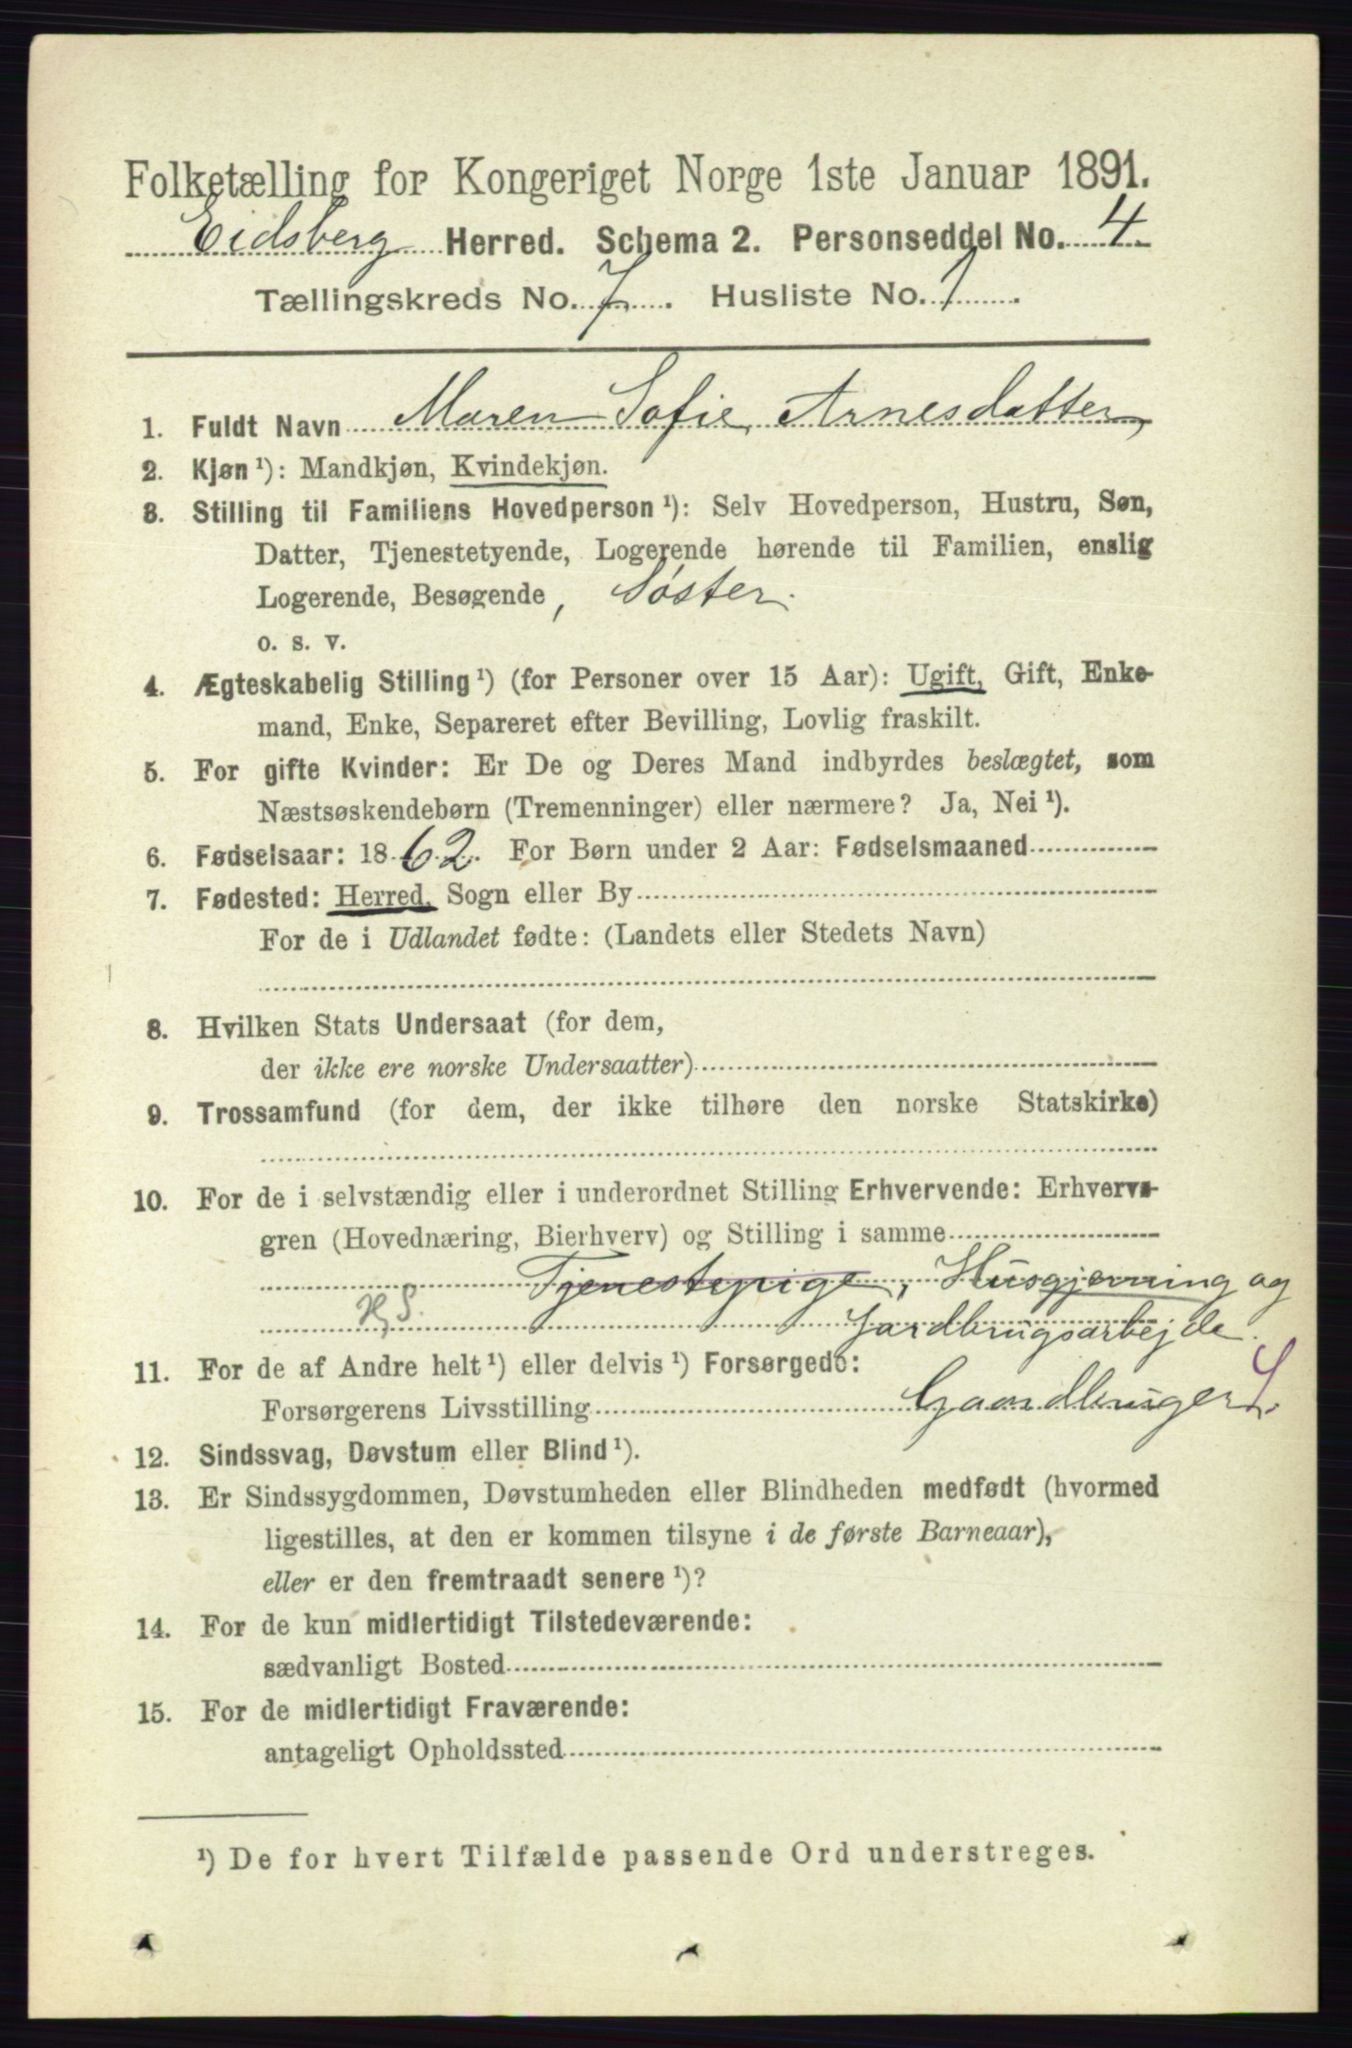 Folketælling for Kongeriget Norge 1ste Januar 1891.
Eidsberg Herred. Schema 2. Personseddel No. 4
Tællingskreds No. 7. Husliste No. 1.
1. Fuldt Navn Maren Sofie Arnesdatter
2. Kjøn ¹): Mandkjøn, Kvindekjøn.
3. Stilling til Familiens Hovedperson ¹): Selv Hovedperson, Hustru, Søn,
Datter, Tjenestetyende, Logerende hørende til Familien, enslig
Logerende, Besøgende, Søster.
o. s. v.
4. Ægteskabelig Stilling ¹) (for Personer over 15 Aar): Ugift, Gift, Enke-
mand, Enke, Separeret efter Bevilling, Lovlig fraskilt.
5. For gifte Kvinder: Er De og Deres Mand indbyrdes beslægtet, som
Næstsøskendebørn (Tremenninger) eller nærmere? Ja, Nei ¹).
6. Fødselsaar: 1862. For Børn under 2 Aar: Fødselsmaaned
7. Fødested: Herred, Sogn eller By
For de i Udlandet fødte: (Landets eller Stedets Navn)
8. Hvilken Stats Undersaat (for dem,
der ikke ere norske Undersaatter)
9. Trossamfund (for dem, der ikke tilhøre den norske Statskirke)
10. For de i selvstændig eller i underordnet Stilling Erhvervende: Erhvervs-
gren (Hovednæring, Bierhverv) og Stilling i samme
Tjenestepige, Husgjerning og
Jordbrugsarbejde.
11. For de af Andre helt ¹) eller delvis ¹) Forsørgede:
Forsørgerens Livsstilling Gaardbruger
12. Sindssvag, Døvstum eller Blind ¹).
13. Er Sindssygdommen, Døvstumheden eller Blindheden medfødt (hvormed
ligestilles, at den er kommen tilsyne i de første Barneaar),
eller er den fremtraadt senere ¹)?
14. For de kun midlertidigt Tilstedeværende:
sædvanligt Bosted
15. For de midlertidigt Fraværende:
antageligt Opholdssted
¹) De for hvert Tilfælde passende Ord understreges.